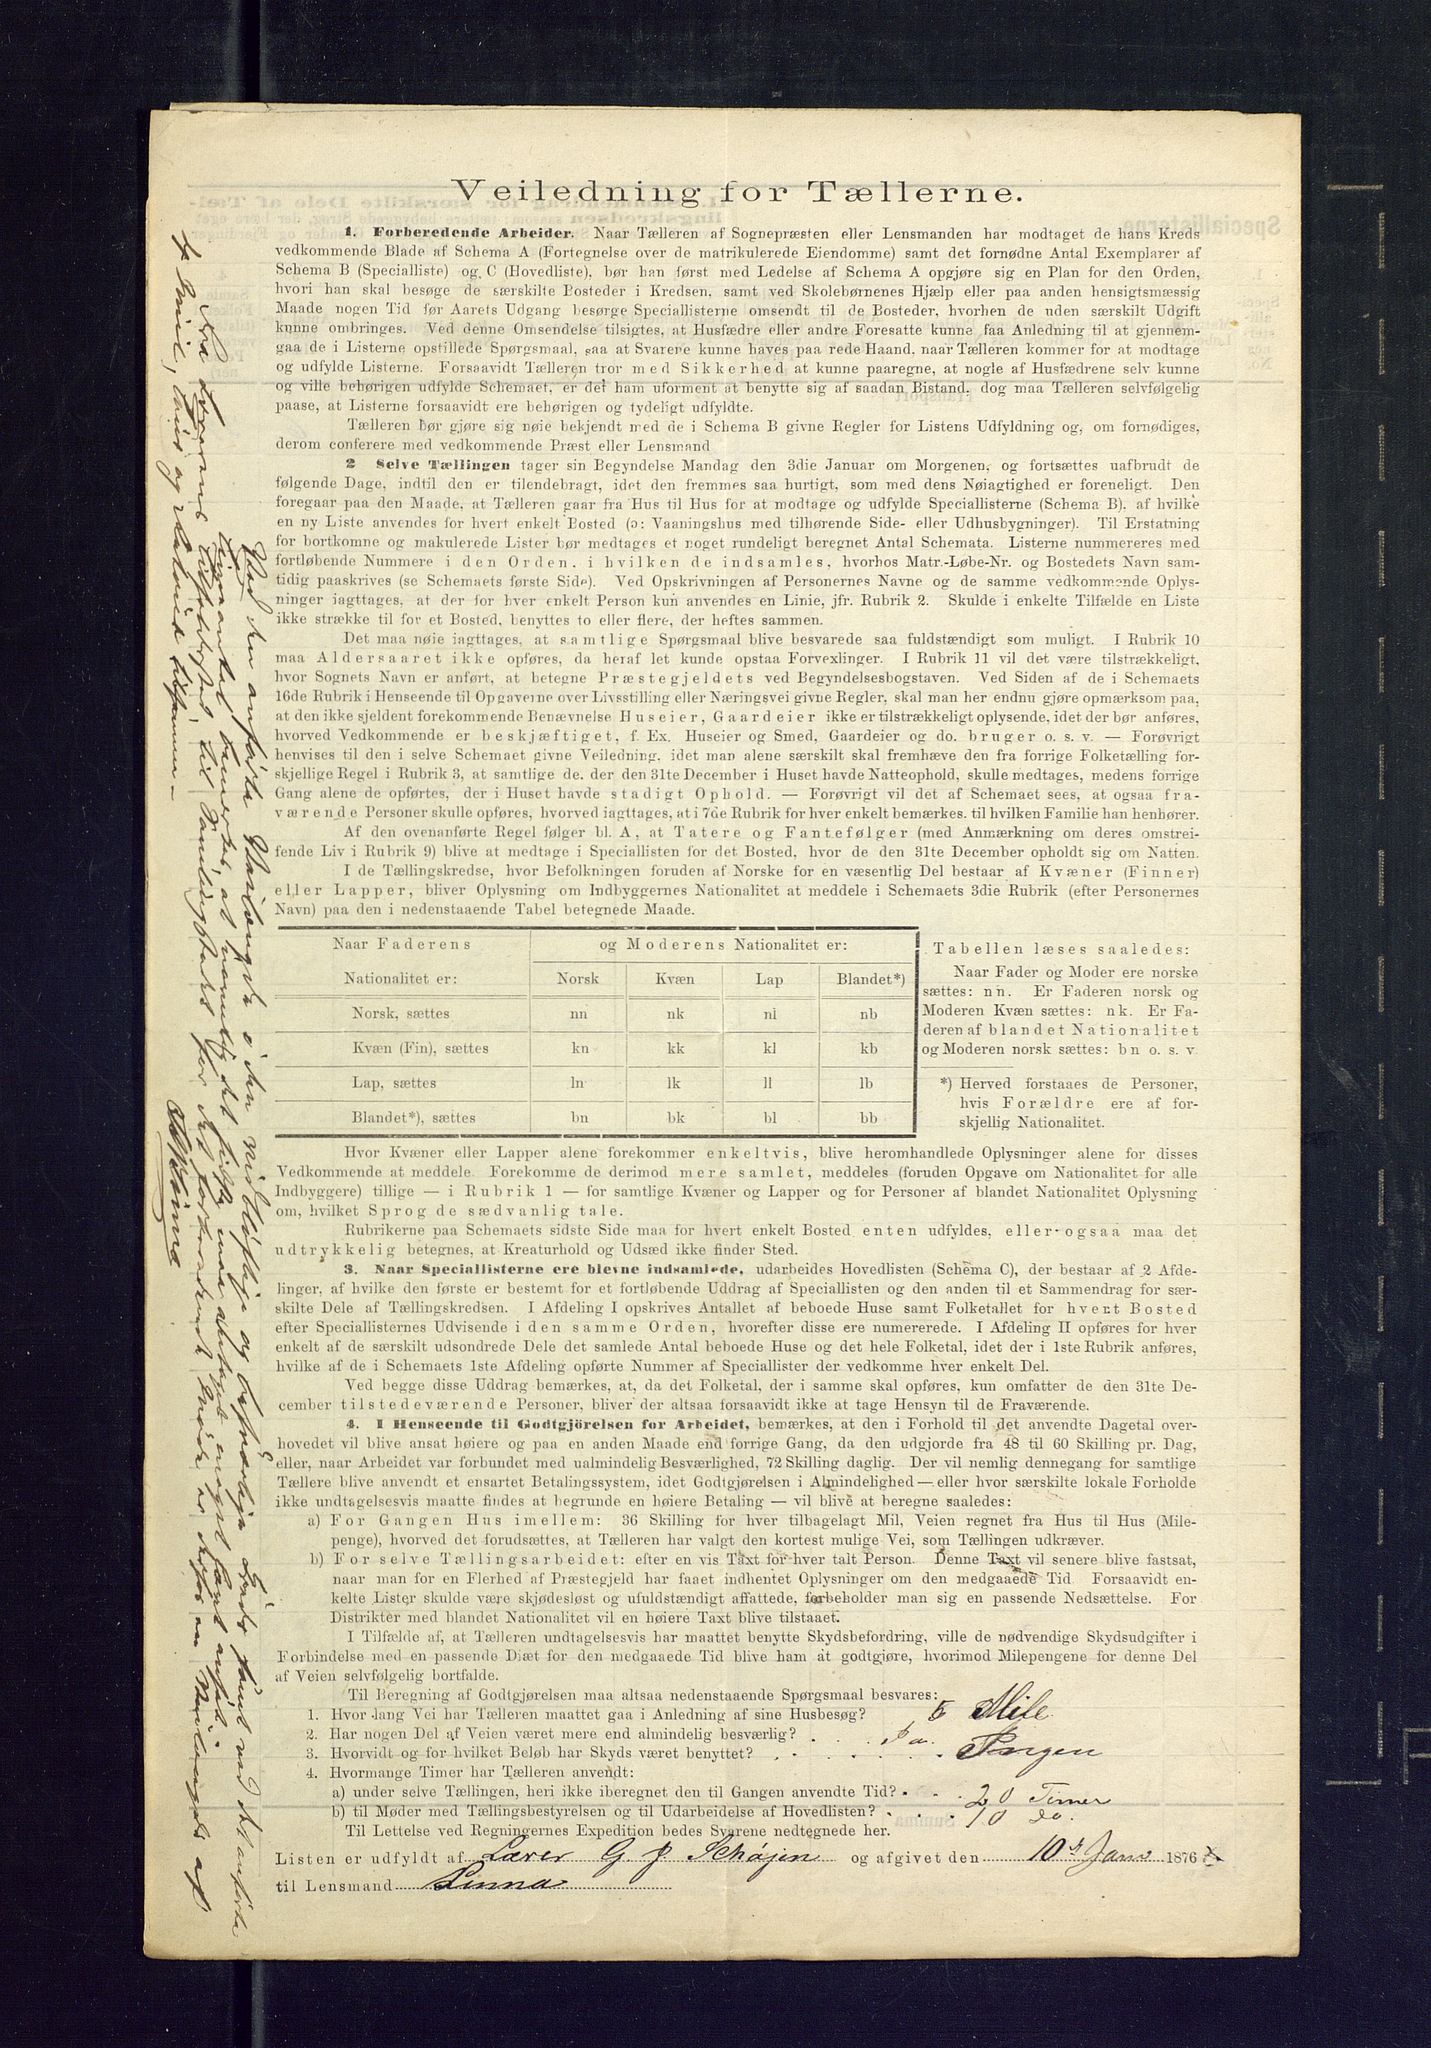 Veiledning for Tællerne.
1. Forberedende Arbeider. Naar Tælleren af Sognepræsten eller Lensmanden har modtaget de hans Kreds
vedkommende Blade af Schema A (Fortegnelse over de matrikulerede Eiendomme) samt det fornødne Antal Exemplarer af
Schema B (Specialliste) og C (Hovedliste), bør han først med Ledelse af Schema A opgjøre sig en Plan for den Orden,
hvori han skal besøge de særskilte Bosteder i Kredsen, samt ved Skolebørnenes Hjælp eller paa anden hensigtsmæssig
Maade nogen Tid før Aarets Udgang besørge Speciallisterne omsendt til de Bosteder, hvorhen de uden særskilt Udgift
kunne ombringes. Ved denne Omsendelse tilsigtes, at Husfædre eller andre Foresatte kunne faa Anledning til at gjennem-
gaa de i Listerne opstillede Spørgsmaal, saa at Svarene kunne haves paa rede Haand, naar Tælleren kommer for at modtage
og udfylde Listerne. Forsaavidt Tælleren tror med Sikkerhed at kunne paaregne, at nogle af Husfædrene selv kunne
og ville behørigen udfylde Schemaet, er det ham uforment at benytte sig af saadan Bistand, dog maa Tælleren selvfølgelig
paase, at Listerne forsaavidt ere behørigen og tydeligt udfyldte.
Tælleren bør gjøre sig nøie bekjendt med de i Schema B givne Regler for Listens Udfyldning og, om fornødiges,
derom conferere med vedkommende Præst eller Lensmand
2 Selve Tællingen tager sin Begyndelse Mandag den 3die Januar om Morgenen, og fortsættes uafbrudt de
følgende Dage, indtil den er tilendebragt, idet den fremmes saa hurtigt, som med dens Nøiagtighed er foreneligt. Den
foregaar paa den Maade, at Tælleren gaar fra Hus til Hus for at modtage og udfylde Speciallisterne (Schema B). af hvilke
en ny Liste anvendes for hvert enkelt Bosted (ɔ: Vaaningshus med tilhørende Side- eller Udhusbygninger). Til Erstatning
for bortkomne og makulerede Lister bør medtages et noget rundeligt beregnet Antal Schemata. Listerne nummereres med
fortløbende Nummere i den Orden, i hvilken de indsamles, hvorhos Matr.-Løbe-Nr. og Bostedets Navn sam-
tidig paaskrives (se Schemaets første Side). Ved Opskrivningen af Personernes Navne og de samme vedkommende Oplys-
ninger iagttages, at der for hver enkelt Person kun anvendes en Linie, jfr. Rubrik 2. Skulde i enkelte Tilfælde en Liste
ikke strække til for et Bosted, benyttes to eller flere, der heftes sammen.
Det maa nøie iagttages, at samtlige Spørgsmaal blive besvarede saa fuldstændigt som muligt. I Rubrik 10
maa Aldersaaret ikke opføres, da heraf let kunde opstaa Forvexlinger. I Rubrik 11 vil det være tilstrækkeligt,
hvor Sognets Navn er anført, at betegne Præstegjeldets ved Begyndelsesbogstaven. Ved Siden af de i Schemaets
16de Rubrik i Henseende til Opgaverne over Livsstilling eller Næringsvei givne Regler, skal man her endnu gjøre opmærksom paa,
at den ikke sjeldent forekommende Benævnelse Huseier, Gaardeier ikke er tilstrækkeligt oplysende, idet der bør anføres,
hvorved Vedkommende er beskjæftiget, f. Ex. Huseier og Smed, Gaardeier og do. bruger o. s. v. — Forøvrigt
henvises til den i selve Schemaet givne Veiledning, idet man alene særskilt skal fremhæve den fra forrige Folketælling for-
skjellige Regel i Rubrik 3, at samtlige de, der den 31te December i Huset havde Natteophold, skulle medtages, medens forrige
Gang alene de opførtes, der i Huset havde stadigt Ophold. — Forøvrigt vil det af Schemaet sees, at ogsaa fra-
værende Personer skulle opføres, hvorved iagttages, at i 7de Rubrik for hver enkelt bemærkes, til hvilken Familie han henhører.
Af den ovenanførte Regel følger bl. A, at Tatere og Fantefølger (med Anmærkning om deres omstrei-
fende Liv i Rubrik 9) blive at medtage i Speciallisten for det Bosted, hvor de den 31te December opholdt sig om Natten.
I de Tællingskredse, hvor Befolkningen foruden af Norske for en væsentlig Del bestaar af Kvæner (Finner)
eller Lapper, bliver Oplysning om Indbyggernes Nationalitet at meddele i Schemaets 3die Rubrik (efter Personernes
Navn) paa den i nedenstaaende Tabel betegnede Maade.
Naar Faderens og Moderens Nationalitet er:
Nationalitet er: Norsk Kvæn Lap Blandet*)
Norsk, sættes nn nk nl nb
Kvæn (Fin), sættes kn kk kl kb
Lap, sættes ln lk ll lb
Blandet*), sættes bn bk bl bb
Tabellen læses saaledes:
Naar Fader og Moder ere norske
sættes: nn. Er Faderen norsk og
Moderen Kvæn sættes: nk. Er Fa-
deren af blandet Nationalitet
og Moderen norsk sættes: bn o. s. v
*) Herved forstaaes de Personer,
hvis Forældre ere af for-
skjellig Nationalitet.
Hvor Kvæner eller Lapper alene forekommer enkeltvis, blive heromhandlede Oplysninger alene for disses
Vedkommende at meddele. Forekomme de derimod mere samlet, meddeles (foruden Opgave om Nationalitet for alle
Indbyggere) tillige — i Rubrik 1 — for samtlige Kvæner og Lapper og for Personer af blandet Nationalitet Oplysning
om, hvilket Sprog de sædvanlig tale.
Rubrikerne paa Schemaets sidste Side maa for hvert enkelt Bosted enten udfyldes, eller ogsaa maa det
udtrykkelig betegnes, at Kreaturhold og Udsæd ikke finder Sted.
3. Naar Speciallisterne ere blevne indsamlede, udarbeides Hovedlisten (Schema C), der bestaar af 2 Afde-
linger, af hvilke den første er bestemt for et fortløbende Uddrag af Speciallisten og den anden til et Sammendrag for sær-
skilte Dele af Tællingskredsen. I Afdeling I opskrives Antallet af beboede Huse samt Folketallet for hvert Bosted
efter Speciallisternes Udvisende i den samme Orden, hvorefter disse ere nummererede. I Afdeling II opføres for hver
enkelt af de særskilt udsondrede Dele det samlede Antal beboede Huse og det hele Folketal, idet der i 1ste Rubrik anføres,
hvilke af de i Schemaets 1ste Afdeling opførte Nummer af Speciallister der vedkomme hver enkelt Del.
Ved begge disse Uddrag bemærkes, at, da det Folketal, der i samme skal opføres, kun omfatter de den 31te De-
cember tilstedeværende Personer, bliver der altsaa forsaavidt ikke at tage Hensyn til de Fraværende.
4. I Henseende til Godtgjörelsen for Arbeidet, bemærkes, at den i Forhold til det anvendte Dagetal over-
hovedet vil blive ansat høiere og paa en anden Maade end forrige Gang, da den udgjorde fra 48 til 60 Skilling pr. Dag,
eller, naar Arbeidet var forbundet med ualmindelig Besværlighed, 72 Skilling daglig. Der vil nemlig dennegang for samtlige
Tællere blive anvendt et ensartet Betalingssystem, idet Godtgjørelsen i Almindelighed — eller hvor særskilte lokale Forholde
ikke undtagelsesvis maatte findes at begrunde en høiere Betaling — vil blive at beregne saaledes:
a) For Gangen Hus imellem: 36 Skilling for hver tilbagelagt Mil, Veien regnet fra Hus til Hus (Mile-
penge), hvorved det forudsættes, at Tælleren har valgt den kortest mulige Vei, som Tællingen udkræver.
b) For selve Tællingsarbeidet: efter en vis Taxt for hver talt Person. Denne Taxt vil senere blive fastsat,
naar man for en Flerhed af Præstegjeld har faaet indhentet Oplysninger om den medgaaede Tid. Forsaavidt en-
kelte Lister skulde være skjødesløst og ufuldstændigt affattede, forbeholder man sig en passende Nedsættelse. For
Distrikter med blandet Nationalitet vil en høiere Taxt blive tilstaaet.
I Tilfælde af, at Tælleren undtagelsesvis har maattet benytte Skydsbefordring, ville de nødvendige Skydsudgifter i
Forbindelse med en passende Diæt for den medgaaede Tid blive ham at godtgjøre, hvorimod Milepengene for denne Del
af Veien selvfølgelig bortfalde.
Til Beregning af Godtgjørelsen maa altsaa nedenstaaende Spørgsmaal besvares:
1. Hvor lang Vei har Tælleren maattet gaa i Anledning af sine Husbesøg? 5 Mile
2. Har nogen Del af Veien været mere end almindelig besværlig? Ja.
3. Hvorvidt og for hvilket Beløb har Skyds været benyttet? Ingen
4. Hvormange Timer har Tælleren anvendt:
a) under selve Tællingen, heri ikke iberegnet den til Gangen anvendte Tid? 20 Timer
b) til Møder med Tællingsbestyrelsen og til Udarbeidelse af Hovedlisten? 10 do.
Til Lettelse ved Regningernes Expedition bedes Svarene nedtegnede her.
Listen er udfyldt af Lærer G. J. Schøjen og afgivet den 10de Janr 1876
til Lensmand Linna